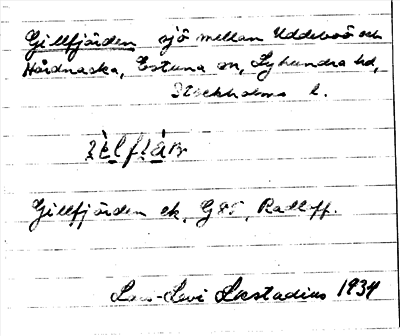 Gillfjärden sjö mellan Uddeboö och
Hårdnacka, Estuna sn, Lyhundra hd,
Stockholms l.
Gillfjärden ek, G 85, Radloff.
Lars-Levi Læstadius 1934